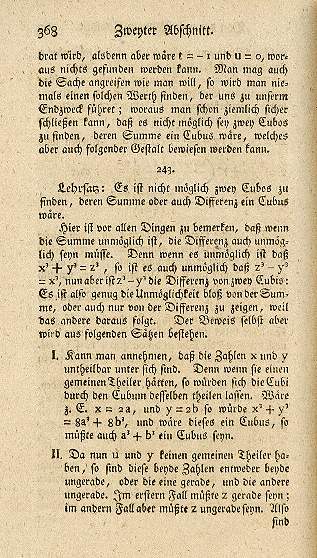 368 Zweyter Abschnitt.
drat wird, alsdenn aber wäre t = – 1 und u = 0, wor-
aus nichts gefunden werden kann. Man mag auch
die Sache angreifen wie man will, so wird man nie-
mals einen solchen Werth finden, der uns zu unserm
Endzweck führet; woraus man schon ziemlich sicher
schließen kann, daß es nicht möglich sey zwey Cubos
zu finden, deren Summe ein Cubus wäre, welches
aber auch folgender Gestalt bewiesen werden kann.
243.
Lehrsatz: Es ist nicht möglich zwey Cubos zu
finden, deren Summe oder auch Differenz ein Cubus
wäre.
Hier ist vor allen Dingen zu bemerken, daß wenn
die Summe unmöglich ist, die Differenz auch unmög-
lich seyn müsse. Denn wenn es unmöglich ist daß
x³ + y³ = z³, so ist es auch unmöglich daß z³ – y³
= x³, nun aber ist z³ – y³ die Differenz von zwey Cubis:
Es ist also genug die Unmöglichkeit bloß von der Sum-
me, oder auch nur von der Differenz zu zeigen, weil
das andere daraus folgt. Der Beweis selbst aber
wird aus folgenden Sätzen bestehen.
I. Kann man annehmen, daß die Zahlen x und y
untheilbar unter sich sind. Denn wenn sie einen
gemeinen Theiler hätten, so würden sich die Cubi
durch den Cubum desselben theilen lassen. Wäre
z. E. x = 2a, und y = 2b so würde x³ + y³
= 8a³ + 8b³, und wäre dieses ein Cubus, so
müßte auch a³ + b³ ein Cubus seyn.
II. Da nun u und y keinen gemeinen Theiler ha-
ben, so sind diese beyde Zahlen entweder beyde
ungerade, oder die eine gerade, und die andere
ungerade. Im erstern Fall müßte z gerade seyn;
im andern Fall aber müßte z ungerade seyn. Also
sind